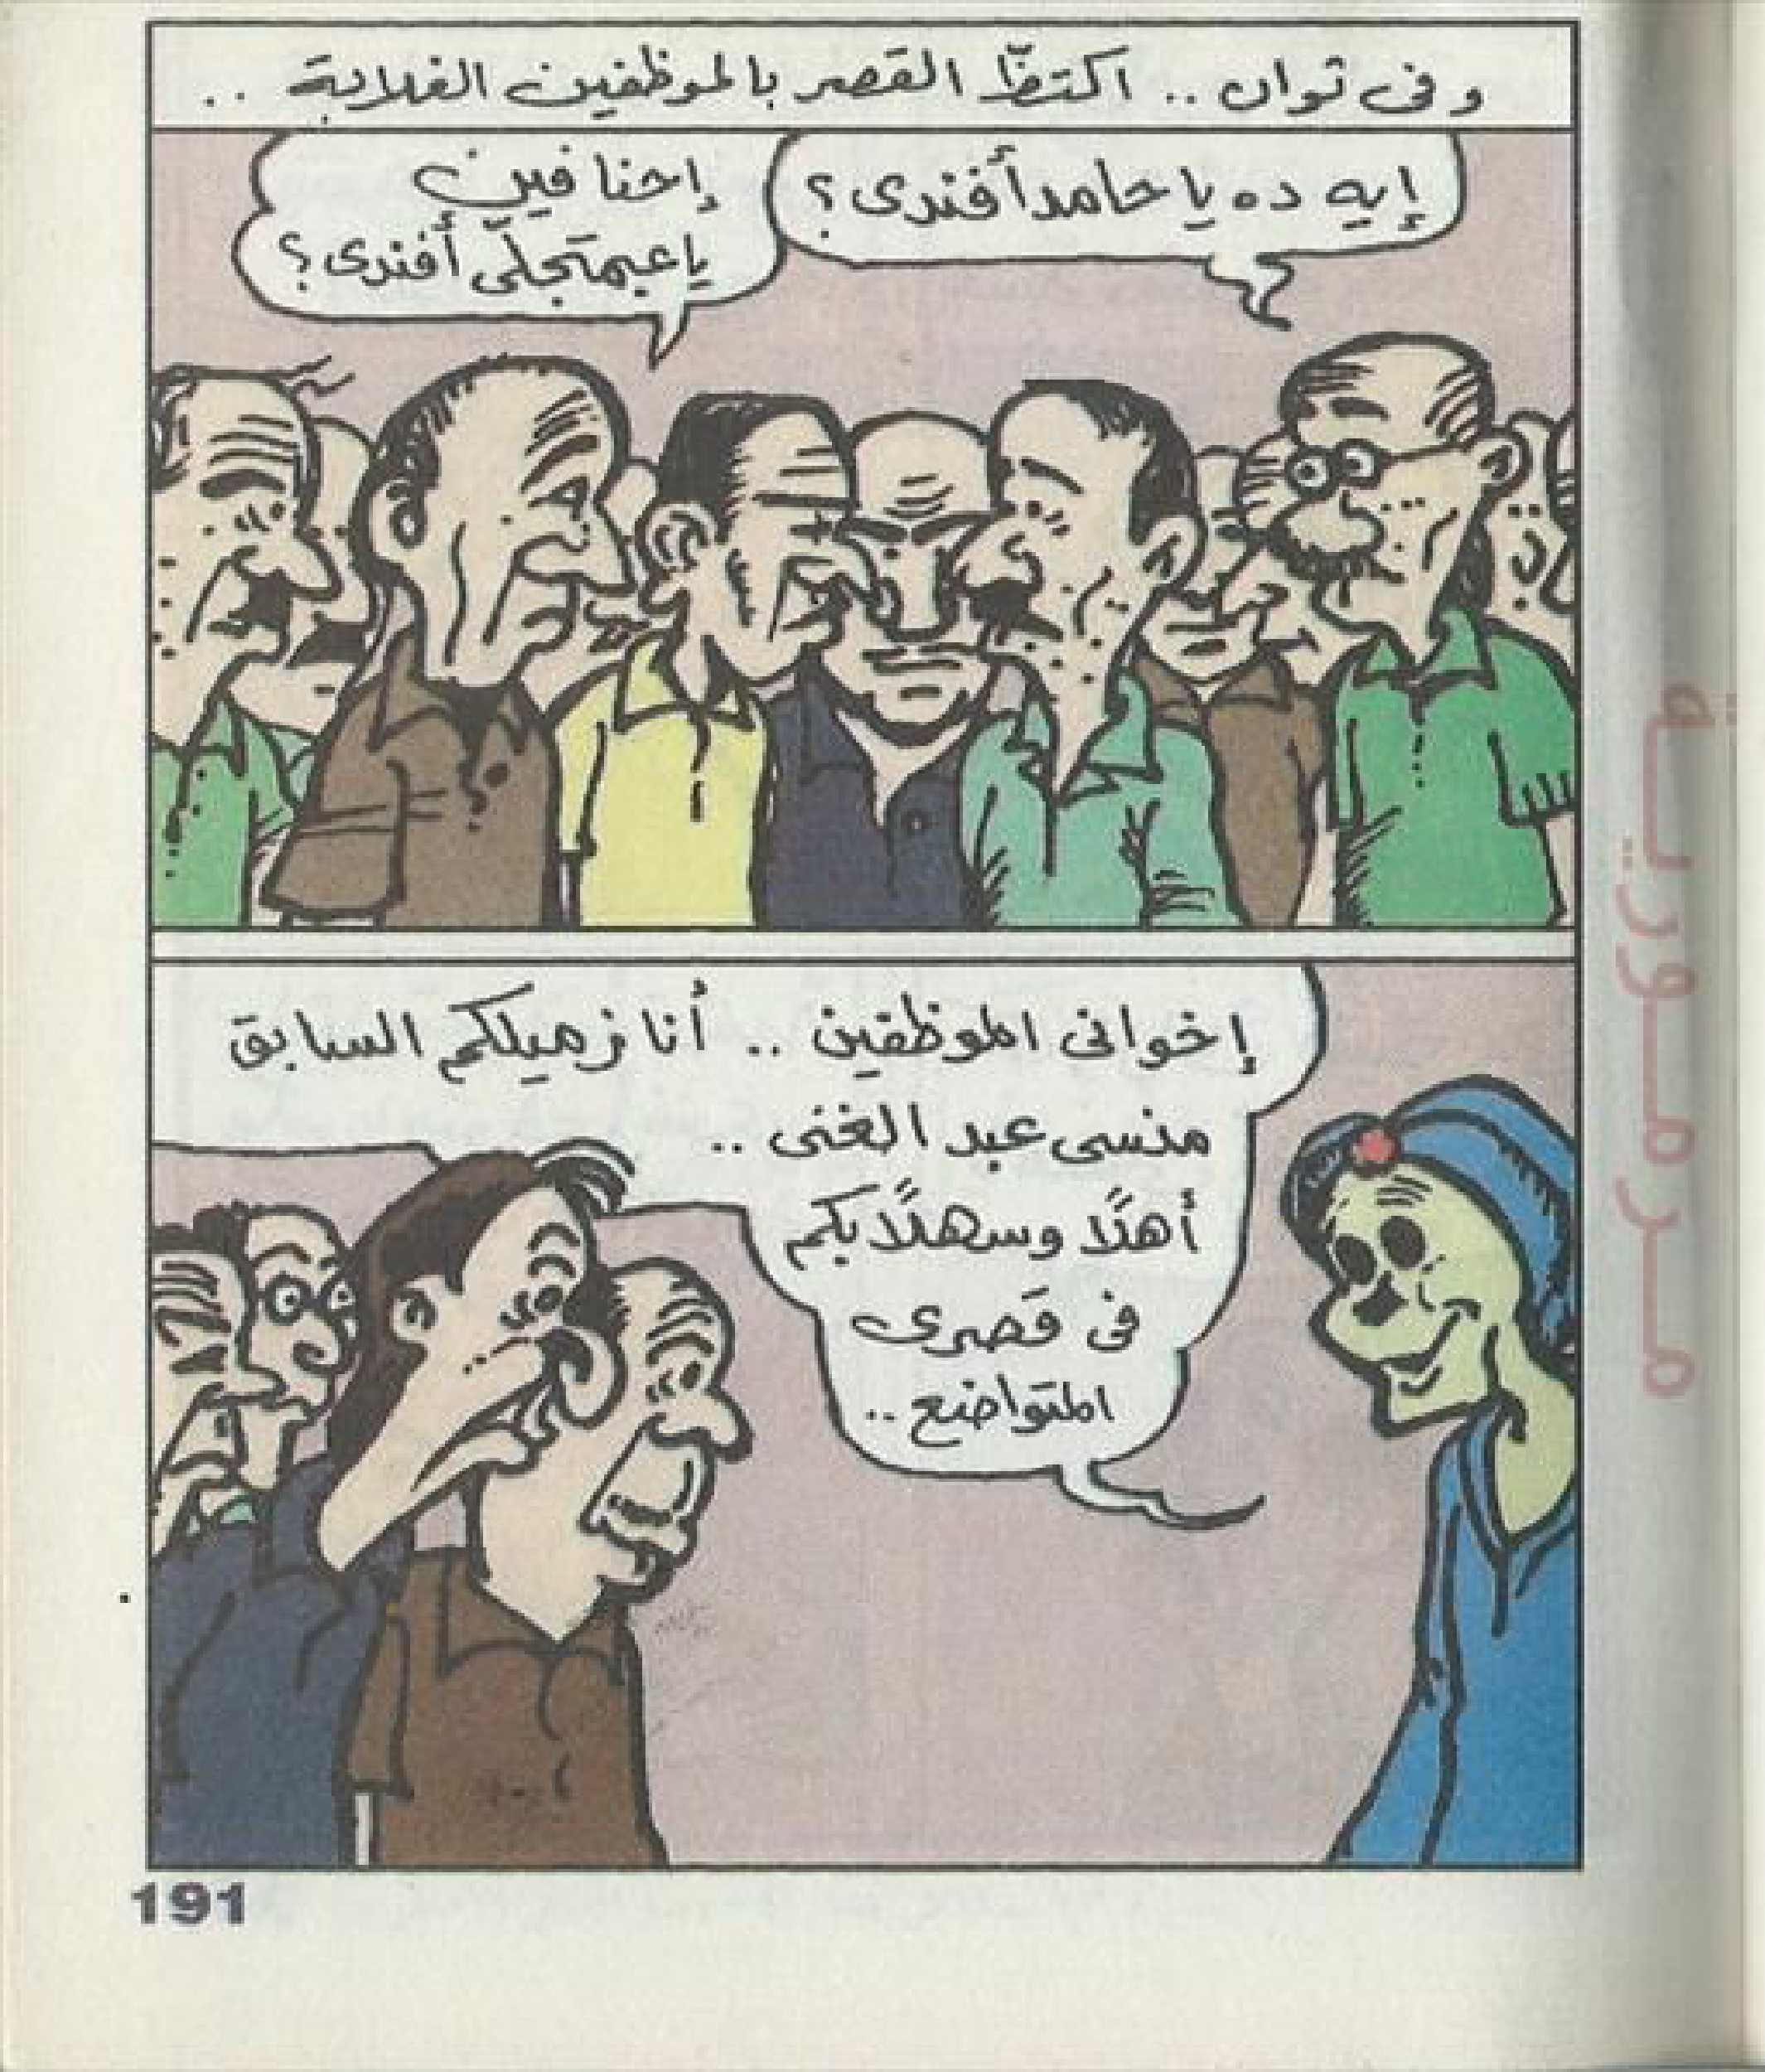 وفى ثوان .. اكتظّ القصر بالموظفين الغلابة ..
إيه ده يا حامد أفندى؟
إحنا فين
يا عبمتجلّى أفندى؟
إخوانى الموظفين .. أنا زميلكم السابق
منسى عبد الغنى ..
أهلًا وسهلًا بكم
فى قصرى
المتواضع ..
مرمورية
191